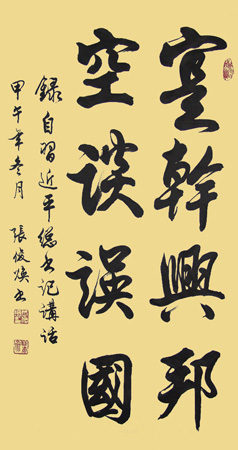 寔幹興邦
空談誤國
錄自習近平總書記講話
甲午年冬月 張俊煥書